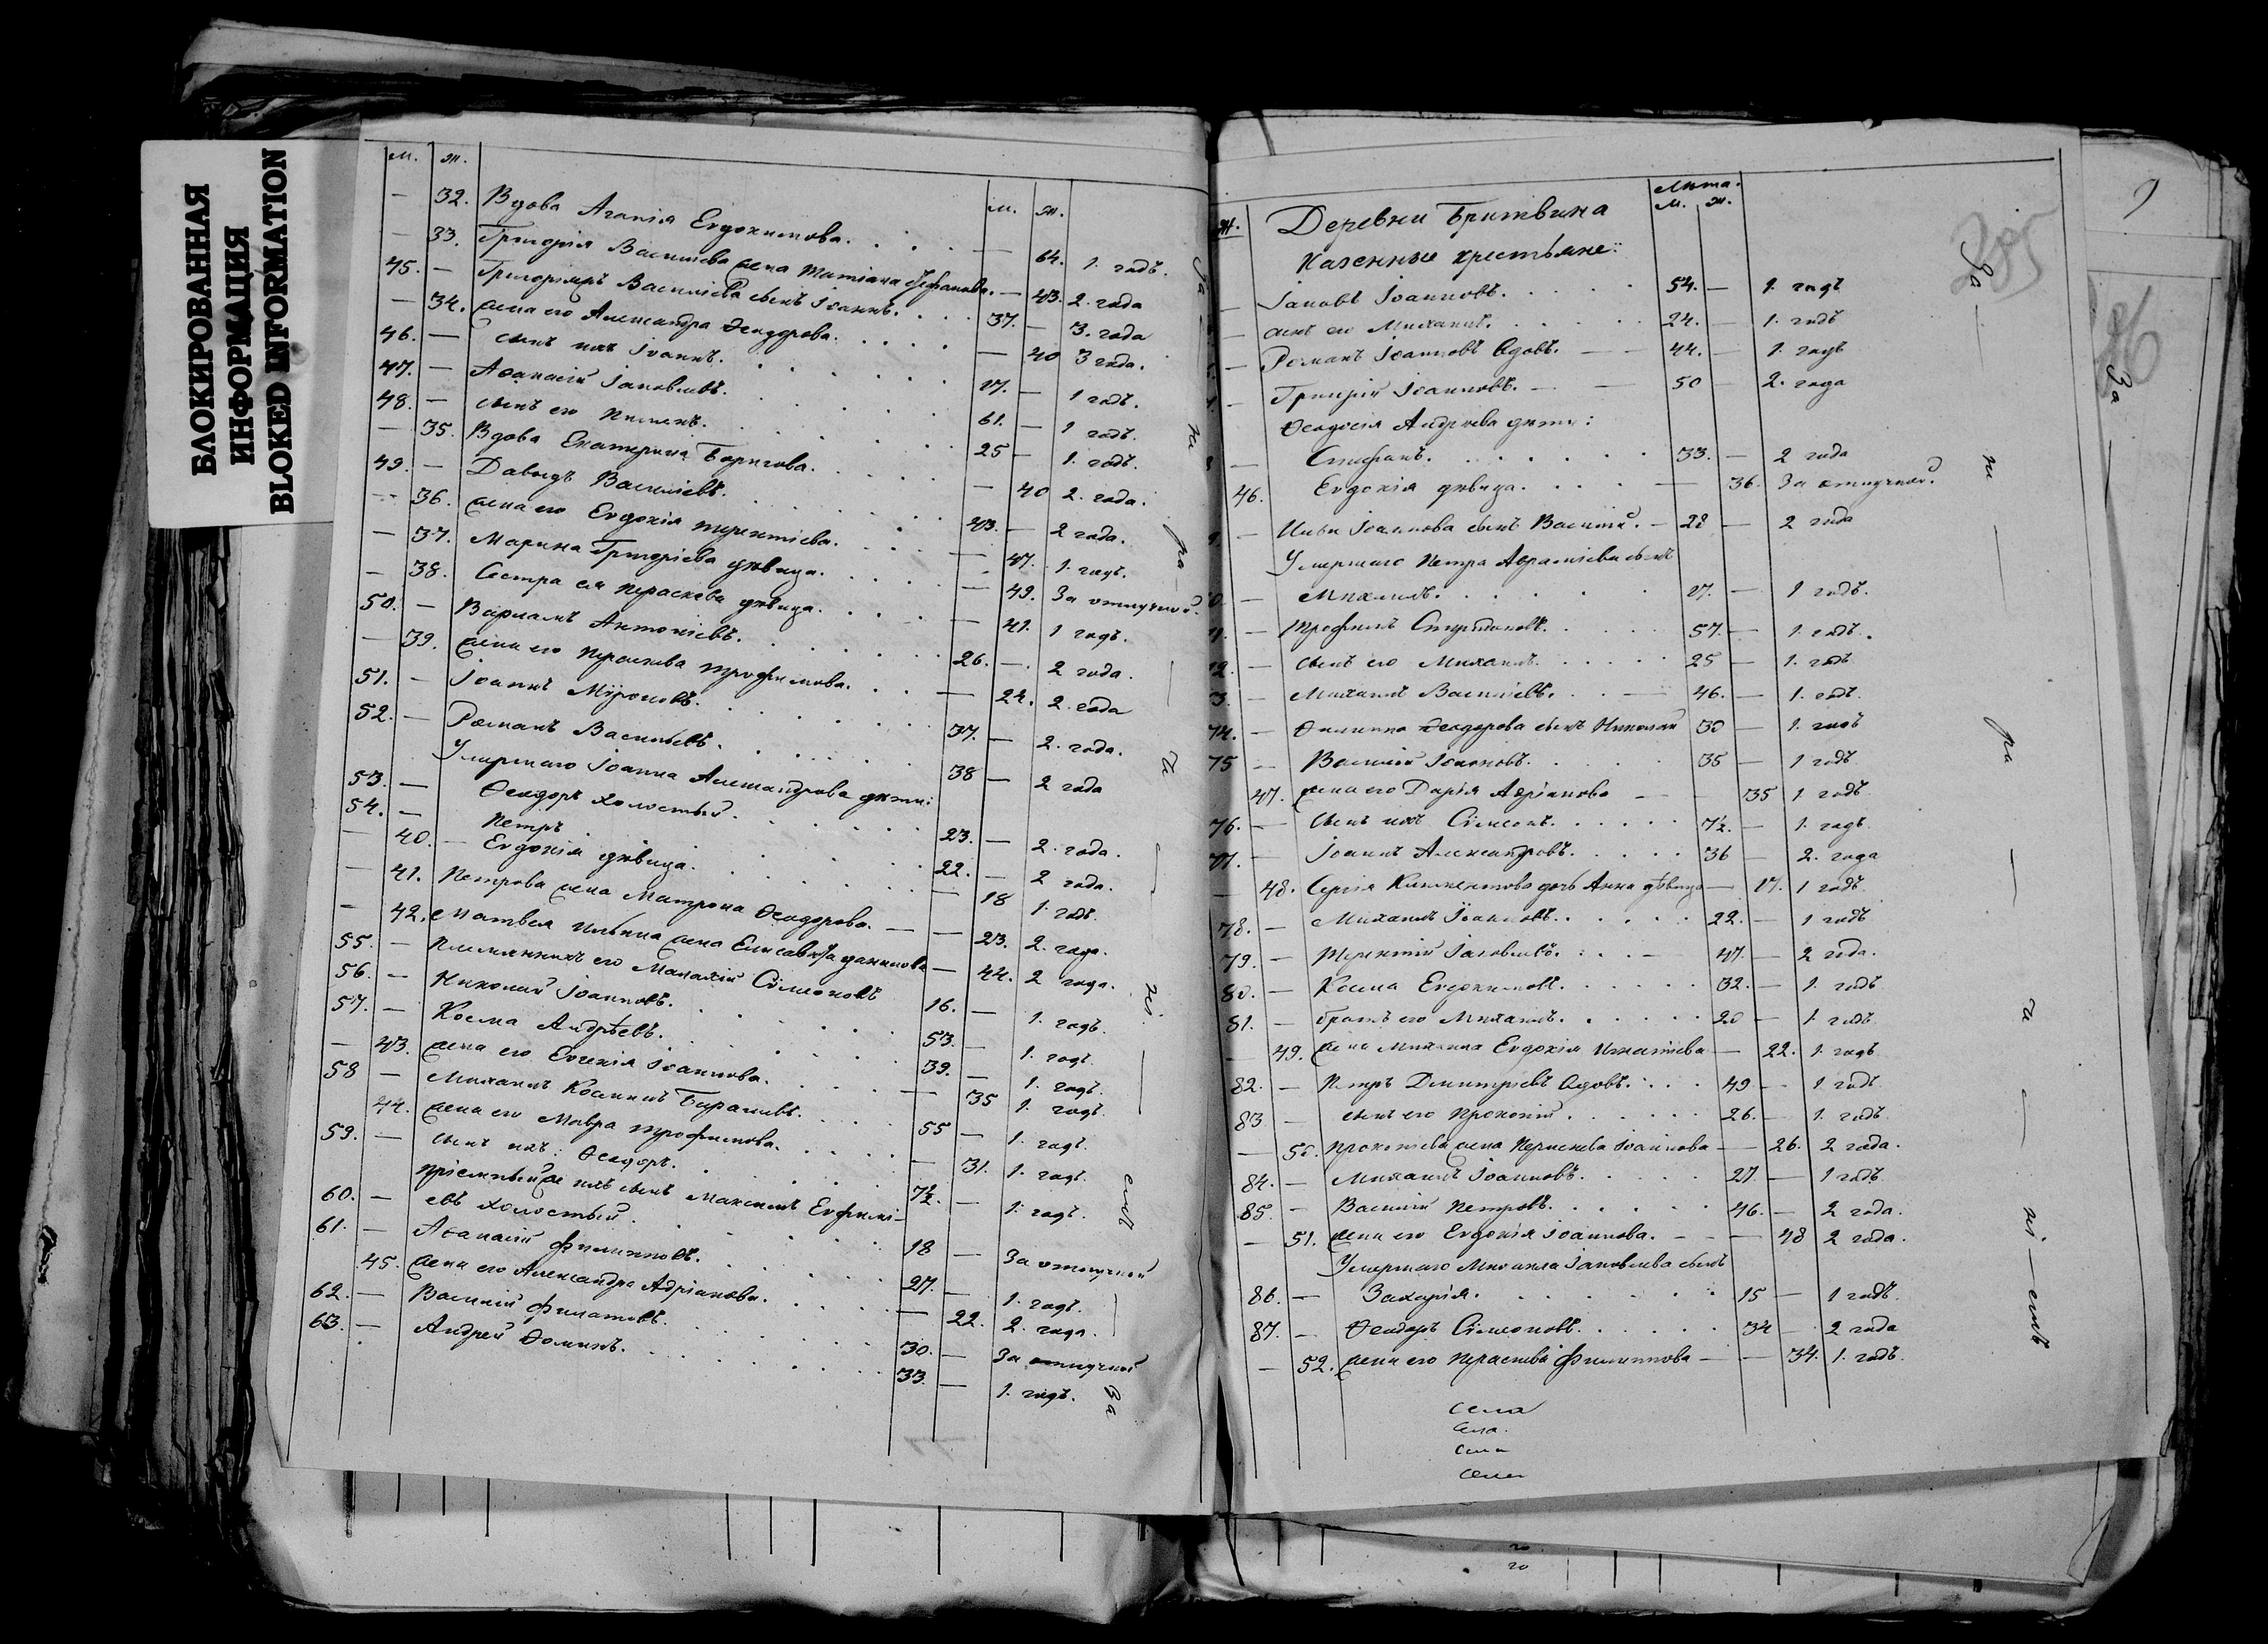 БЛОКИРОВАННАЯ
ИНФОРМАЦИЯ
BLOKED INFORMATION
м. ж. м. ж.
— 32. Вдова Агапія Евдокимова. — 64. 1. годъ.
— 33. Григорія Васильева жена Татіана Стефанова. — 43. 2. года
45. — Григорія Василіева сынъ Іоаннъ. 37. — 3. года
— 34. жена его Александра Ѳеодорова. — 40 3 года.
46. — сынъ ихъ Іоаннъ. 17. — 1 годъ.
47. — Аѳанасій Іаковлевъ. 61. — 1 годъ.
48. — сынъ его Пименъ. 25 — 1. годъ.
— 35. Вдова Екатерина Борисова. — 40 2. года.
49. — Давыдъ Василіевъ. 43. — 2 года.
— 36. жена его Евдокія Терентіева. — 47. 1. годъ.
— 37. Марина Григоріева дѣвица. — 49. За отлучкой.
— 38. Сестра ея Параскева дѣвица. — 41. 1 годъ.
50. — Варлаамъ Антоніевъ. 26. — 2 года.
— 39. жена его Параскева Трофимова. — 24. 2. года
51. — Іоаннъ Мѵроновъ. 37. — 2. года.
52. — Романъ Васильевъ. 38 — 2 года
Умершаго Іоанна Александрова дѣти:
53. — Ѳеодоръ холостый. 23. — 2. года.
54. — Петръ 22. — 2 года.
— 40. — Евдокія дѣвица. — 18 1. годъ.
— 41. Петрова жена Матрона Ѳеодорова. — 23. 2. года.
— 42. Матвея Ильина жена Елисавета Данилова — 44. 2 года.
55. — Племянникъ его Малахій Сѵмеоновъ 16. — 1. годъ.
56. — Николай Іоанновъ. 53. — 1. годъ.
57. — Косма Андрѣевъ. 39. — 1. годъ.
— 43. жена его Евгенія Іоаннова. — 35 1. годъ.
58 — Михаилъ Косминъ 55 — 1. годъ.
44. жена его Мавра Трофимова. — 31. 1. годъ.
59. — сынъ ихъ: Ѳеодоръ. 7½. — 1. годъ.
Пріемный же ихъ сынъ Максимъ Евфимі-
60. — евъ холостый. 18 — За отлучкой
61. — Аѳанасій Филипповъ. 27. — 1. годъ.
45. жена его Александра Адріанова. — 22. 2. года.
62. — Василій Филатовъ. 30. — За отлучкой
63. — Андрей Ѳоминъ. 33. — 1. годъ.
За
ж. Деревни Бритвина Лѣта.
м. ж.
Казенные крестьяне:
— Іаковъ Іоанновъ. 54. — 1. годъ
— сынъ его Михаилъ. 24. — 1. годъ
— Романъ Іоанновъ вдовъ. 44. — 1. годъ
— Григорій Іоанновъ. 50 — 2. года
Ѳеодосія Андреева дѣти:
— Стефанъ. 33. — 2 года
46. Евдокія дѣвица. — 36. За отлучкой.
— Ильи Іоаннова сынъ Василій. 28 — 2 года
Умершаго Петра Авраміева сынъ
— Михаилъ. 27. — 1 годъ.
— Трофимъ 57. — 1. годъ.
— сынъ его Михаилъ. 25 — 1. годъ
— Михаилъ Василіевъ. 46. — 1. годъ.
74. — Филиппа Ѳеодорова сынъ Николай 30 — 1. годъ
75 — Василій 35 — 1 годъ.
47. жена его Дарія Адріанова — 35 1 годъ
76. — сынъ ихъ Сѵмеонъ. 7½. — 1. годъ.
77. — Іоаннъ Александровъ. 36 — 2. года
— 48. Сергія Климентова дочь Анна дѣвица — 17. 1 годъ.
78. — Михаилъ Іоанновъ. 22. — 1 годъ
79. — Терентій Іаковлевъ. 47. — 2 года.
80. — Косма Евдокимовъ. 32. — 1. годъ
81. — братъ его Михаилъ. 20 — 1. годъ.
— 49. жена Михаила Евдокія Игнатіева — 22. 1. годъ
82. — Петръ Димитріевъ вдовъ. 49 — 1 годъ.
83 — сынъ его Прокопій. 26. — 1. годъ.
— 50. Прокопіева жена Параскева Іоаннова — 26. 2 года.
84. — Михаилъ Іоанновъ. 27. — 1 годъ.
85. — Василій Петровъ. 46. — 2 года.
— 51. жена его Евдокія Іоаннова. — 48 2 года.
Умершаго Михаила Іаковлева сынъ
86. — Захарія. 15 — 1 годъ.
87. — Ѳеодоръ Сѵмеоновъ. 34 — 2 года
— 52. жена его Параскева Филиппова — 34. 1. годъ.
села
села.
села
села
За